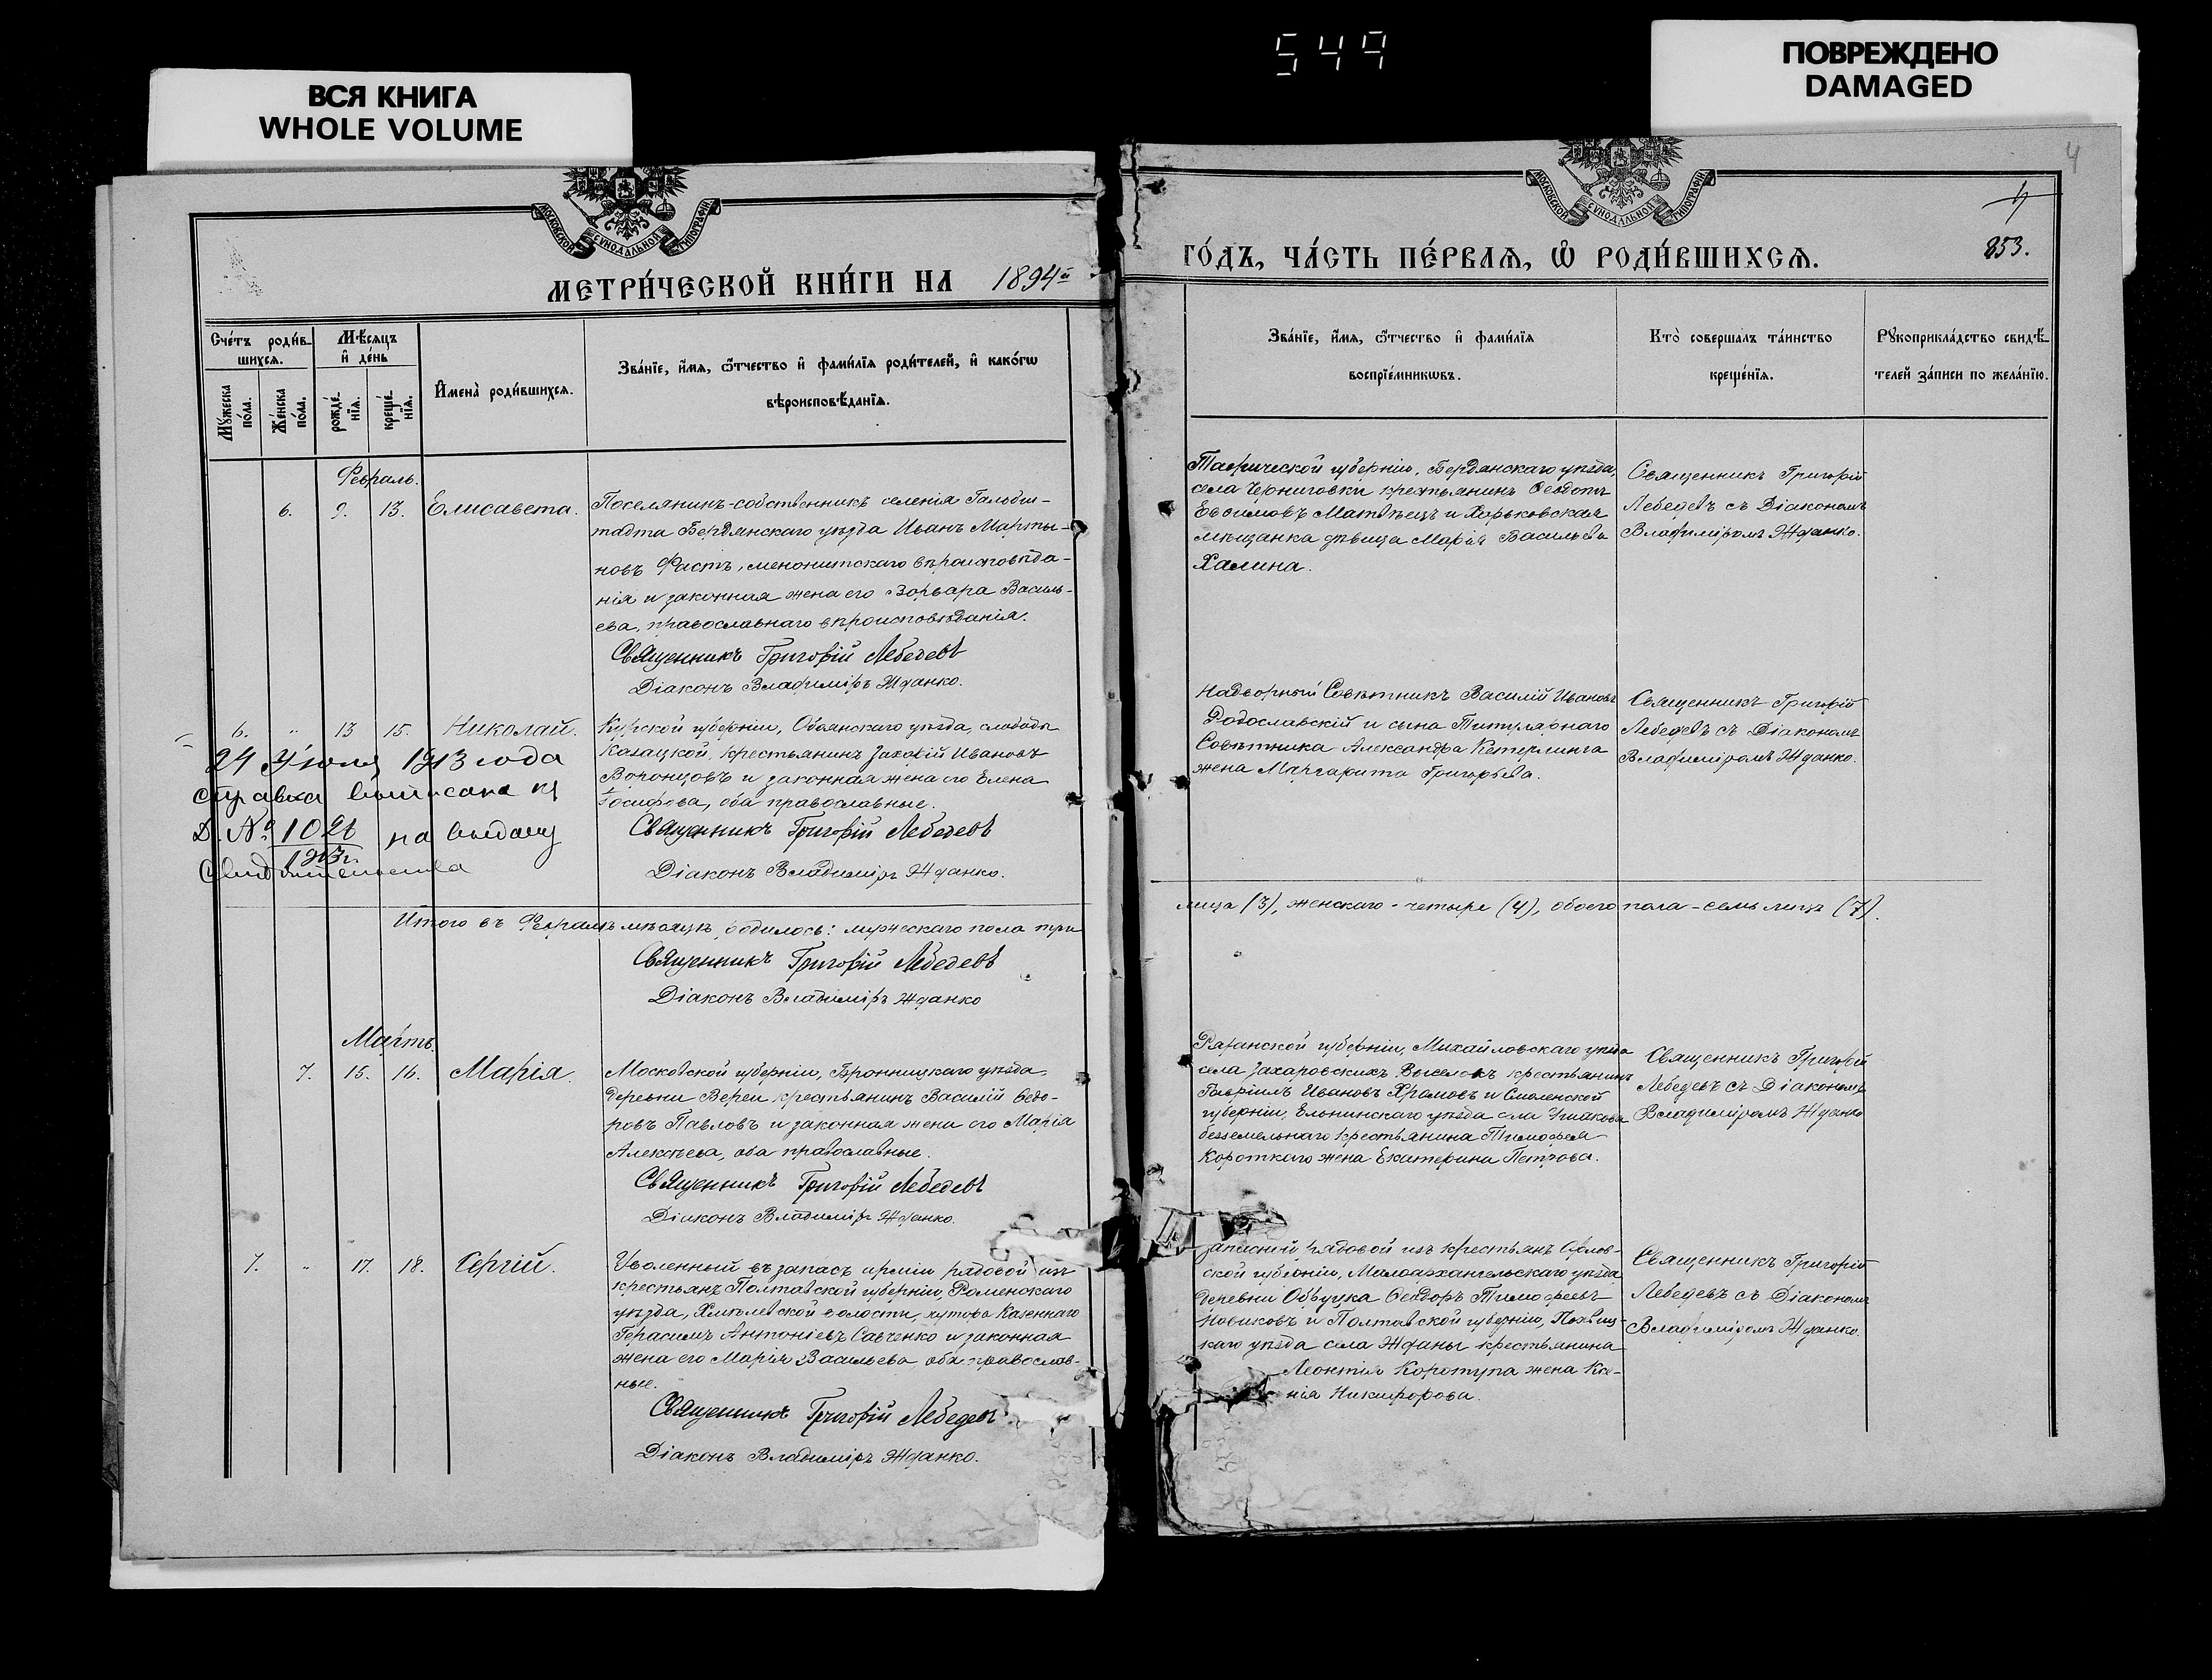 ВСЯ КНИГА
WHOLE VOLUME
549
ПОВРЕЖДЕНО
DAMAGED
4
853.
МОСКОВСКОЙ СѴНОДАЛЬНОЙ ТИПОГРАФІИ
МОСКОВСКОЙ СѴНОДАЛЬНОЙ ТИПОГРАФІИ
МЕТРИ́ЧЕСКОЙ КНИ́ГИ НА 1894й
ГО́ДЪ, ЧА́СТЬ ПЕ́РВАѦ, Ѡ҆ РОДИ́ВШИХСѦ.
Сче́тъ роди́в-
шихсѧ.
Мꙋ́жеска по́ла.
Же́нска по́ла.
Мѣ́сѧцъ
и҆ де́нь
рожде́-
нїѧ.
креще́-
нїѧ.
И҆мена̀ роди́вшихсѧ.
Зва́нїе, и҆́мѧ, ѻ҆́тчество и҆ фами́лїѧ роди́телей, и҆ како́гѡ
вѣроисповѣ́данїѧ.
Зва́нїе, и҆́мѧ, ѻ҆́тчество и҆ фами́лїѧ
воспрїе́мникѡвъ.
Кто̀ совершалъ та́инство
креще́нїѧ.
Рꙋкоприкла́дство свидѣ́-
телей за́писи по жела́нїю.
Февраль.
6. 9. 13. Елисавета.
Поселянинъ-собственникъ селенія Гальбш-
тадта Бердянскаго уѣзда Иванъ Марты-
новъ Фастъ, менонитскаго вѣроисповѣда-
нія и законная жена его Варвара Василь-
ева, православнаго вѣроисповѣданія.
Священникъ Григорій Лебедевъ
Діаконъ Владиміръ Жданко.
Таврической губерніи, Бердянскаго уѣзда,
села Черниговки крестьянинъ Ѳеодотъ
Евѳимовъ Матвѣецъ и Харьковская
мѣщанка дѣвица Марія Васильева
Халина.
Священникъ Григорій
Лебедевъ съ Діакономъ
Владиміромъ Жданко.
6. " 13 15. Николай.
Курской губерніи, Обоянскаго уѣзда, слободы
Казацкой, крестьянинъ Захарій Ивановъ
Воронцовъ и законная жена его Елена
Іосифова, оба православные.
Священникъ Григорій Лебедевъ
Діаконъ Владиміръ Жданко.
24 Іюля 1913 года
справка выписана къ
Д. № 1026
1913 г.
на выдачу
Свидѣтельства
Надворный Совѣтникъ Василій Ивановъ
Родославскій и сына Титулярнаго
Совѣтника Александра Кетерлинга
жена Маргарита Григорьева.
Священникъ Григорій
Лебедевъ съ Діакономъ
Владиміромъ Жданко.
Итого въ Февралѣ мѣсяцѣ родилось: мужескаго пола три
лица (3), женскаго - четыре (4), обоего пола - семь лицъ (7).
Священникъ Григорій Лебедевъ
Діаконъ Владиміръ Жданко
Мартъ.
7. 15. 16. Марія.
Московской губерніи, Бронницкаго уѣзда,
деревни Вереи крестьянинъ Василій Ѳедо-
ровъ Павловъ и законная жена его Марія
Алексѣева, оба православные.
Священникъ Григорій Лебедевъ
Діаконъ Владиміръ Жданко.
Рязанской губерніи, Михайловскаго уѣзда
села Захаровскихъ Выселокъ крестьянинъ
Гавріилъ Ивановъ Храмовъ и Смоленской
губерніи, Ельнинскаго уѣзда села
безземельнаго крестьянина Тимофея
Короткаго жена Екатерина Петрова.
Священникъ Григорій
Лебедевъ съ Діакономъ
Владиміромъ Жданко
7. " 17. 18. Сергій.
Уволенный въ запасъ арміи рядовой изъ
крестьянъ Полтавской губерніи, Роменскаго
уѣзда, Хмѣлевской волости, хутора Казеннаго
Герасимъ Антоніевъ Савченко и законная
жена его Марія Васильева оба православ-
ные.
Священникъ Григорій Лебедевъ
Діаконъ Владиміръ Жданко.
Запасный рядовой изъ крестьянъ Орлов-
ской губерніи, Малоархангельскаго уѣзда
деревни Ѳеодоръ Тимофеевъ
Новиковъ и Полтавской губерніи, Лохвиц-
каго уѣзда села Жданы крестьянина
Леонтія Коротупа жена Ксе-
нія Никифорова.
Священникъ Григорій
Лебедевъ съ Діакономъ
Владиміромъ Жданко.